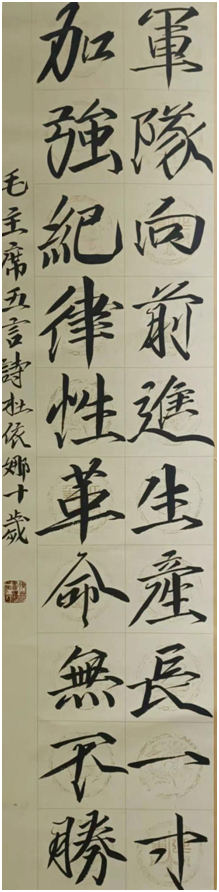 軍隊向前進生產長一寸
加強紀律性革命無不勝
毛主席五言詩杜依娜十歲